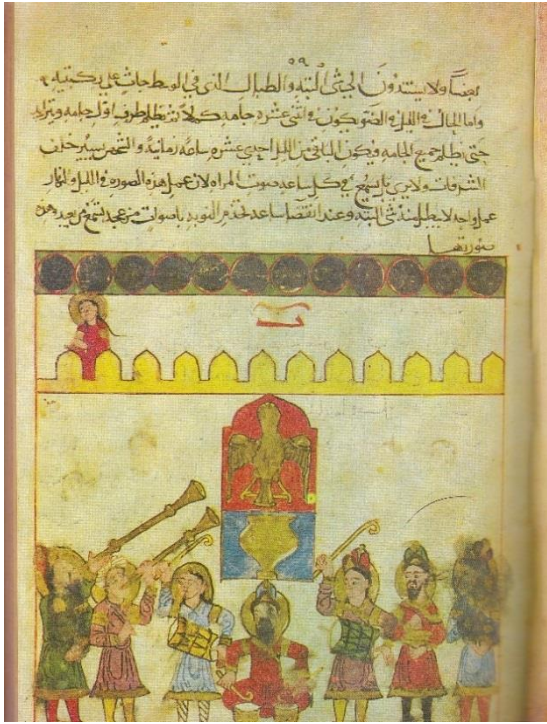 بعضاً ولا الجثي البته والطبال الذي في الوسط جاث على ركبتيه
واما الحال في الليل في الضو يكون في اثنى عشره جامه كملا ثم يظلم طرف اول جامه ويتزايد
حتى اظلم جميع الجامه فيكون الباقي من الليل احدى عشره ساعه زمانيه والشخص يسير خلف
الشرفات ولا يرى بل يسمع في كل ساعه صوت المراه لان عمل هذه الصوره في الليل والنهار
عمل واحد لا يبطل منه شي البته وعند انقضا ساعه تخدم النوبه باصوات تسمع من بعد وهذه
صورتها